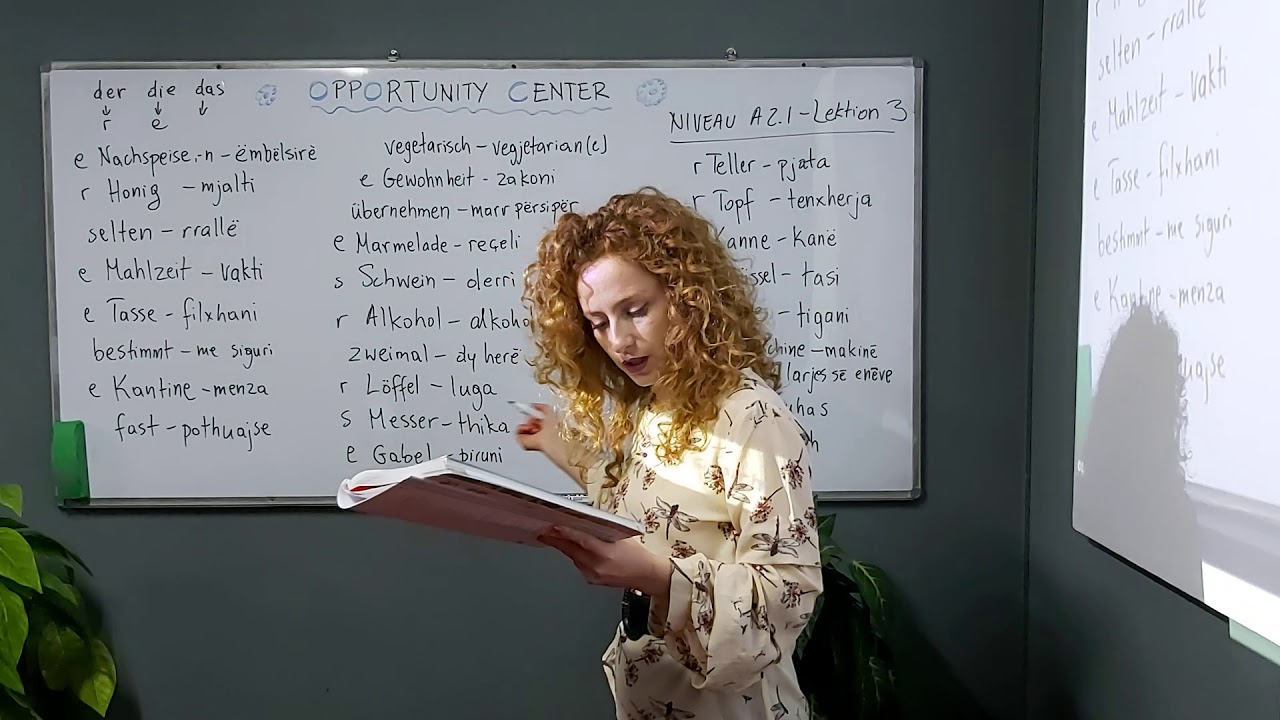 der die das
↓ ↓ ↓
r e
OPPORTUNITY CENTER
NIVEAU A2.1 - Lektion 3
e Nachspeise,-n - ëmbëlsirë
r Honig - mjalti
selten - rrallë
e Mahlzeit - vakti
e Tasse - filxhani
bestimnt - me siguri
e Kantine - menza
fast - pothuajse
vegetarisch - vegjetarian(e)
e Gewohnheit - zakoni
übernehmen - marr përsipër
e Marmelade - reçeli
s Schwein - derri
r Alkohol - alkoho
zweimal - dy herë
r Löffel - luga
s Messer - thika
e Gabel - piruni
r Teller - pjata
r Topf - tenxherja
anne - kanë
ssel - tasi
- tigani
hine - makinë
larjes së enëve
has
h
selten - rrallë
e Mahlzeit - vakti
e Tasse - filxhani
bestimnt - me siguri
e Kantine - menza
uajse